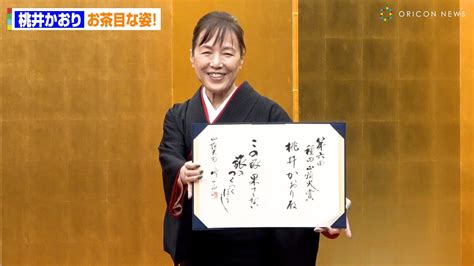 桃井かおり お茶目な姿!
ORICON NEWS
第六回
種田山頭火賞
桃井かおり殿
この旅 果てもない
旅の
つくつくぼうし